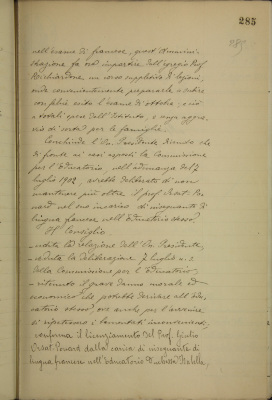 285
285.
nell'esame di francese, quest'Amministrazione fa ora impartire dall'egregio Prof.
un corso suppletivo di lezioni,
onde convenientemente prepararle a subire
con felice esito l'esame d'ottobre; e ciò
a totali spese dell'Istituto, e senza aggravio di sorta per le famiglie.
Conclude l'On. Presidente dicendo che
di fronte ai casi esposti la Commissione
per l'Educatorio, nell'adunanza del 2
luglio 1902, avrebbe deliberato di non
mantenere più oltre il prof.
nel suo incarico di insegnante di
lingua francese nell'Educatorio stesso.
Il Consiglio,
- udita la relazione dell'On. Presidente,
- veduta la deliberazione 2 luglio u.s.
della Commissione per l'Educatorio,
- ritenuto il grave danno morale ed
economico che potrebbe derivare all'Educatorio stesso, ove anche per l'avvenire
si ripetessero i lamentati inconvenienti,
conferma il licenziamento del Prof. Giulio
dalla carica di insegnante di
lingua francese nell'Educatorio